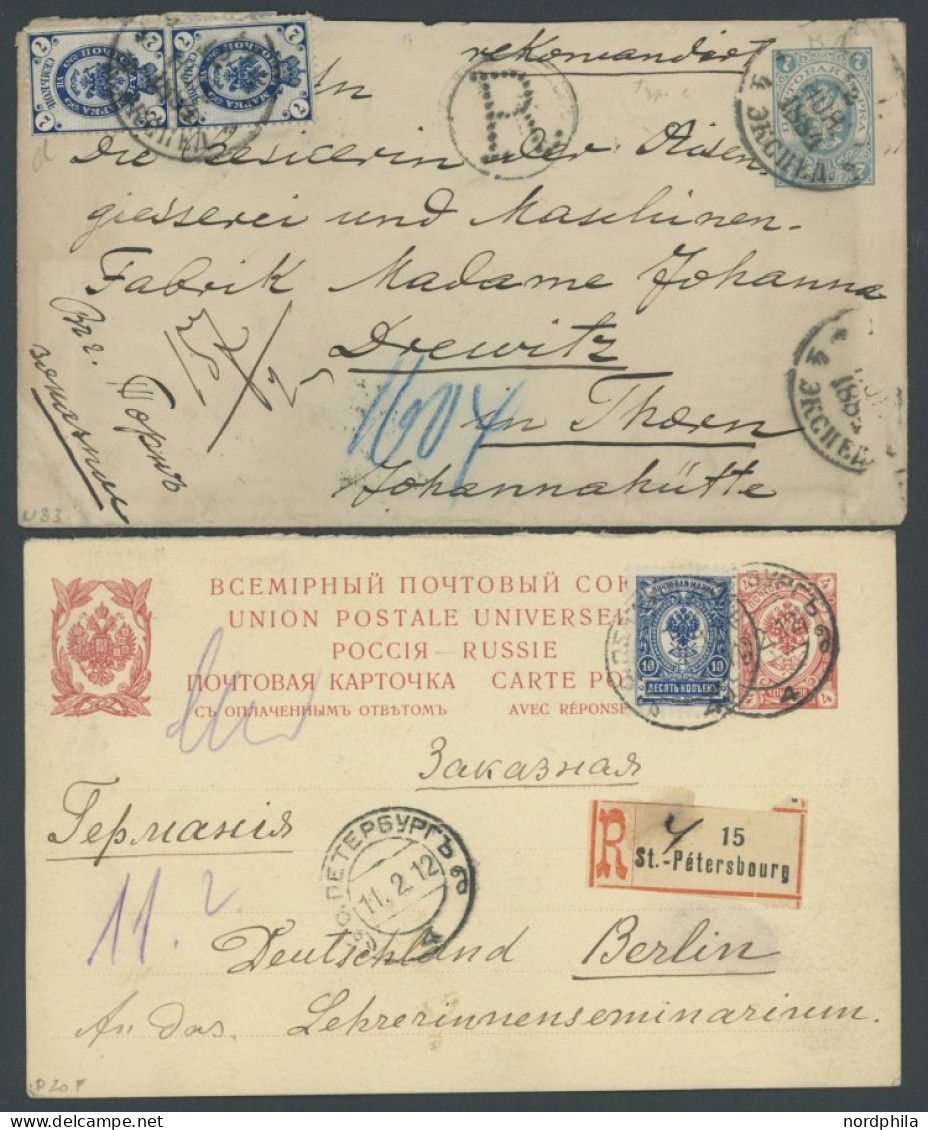 rekomandirt
R.
Die Besicerin der Aisen
giesserei und Maschinen-
Fabrik Madame Johanna
Drewitz
in Thorn
Johannahütte
Торнъ
1604
ЭКСПЕД
1884
ЭКСПЕД
U 33
ВСЕМІРНЫЙ ПОЧТОВЫЙ СОЮ
UNION POSTALE UNIVERSE
РОССІЯ — RUSSIE
ПОЧТОВАЯ КАРТОЧКА CARTE PO
СЪ ОПЛАЧЕННЫМЪ ОТВѢТОМЪ AVEC RÉPONSE
10 10
ДЕСЯТЬ КОПѢЕКЪ
Заказная
Германія
R 15
St.-Pétersbourg
С.ПЕТЕРБУРГЪ
11.2.12
4
11. 2.
Deutschland Berlin
An das Lehrerinnenseminarium.
P 20 F
www.nordphila.de